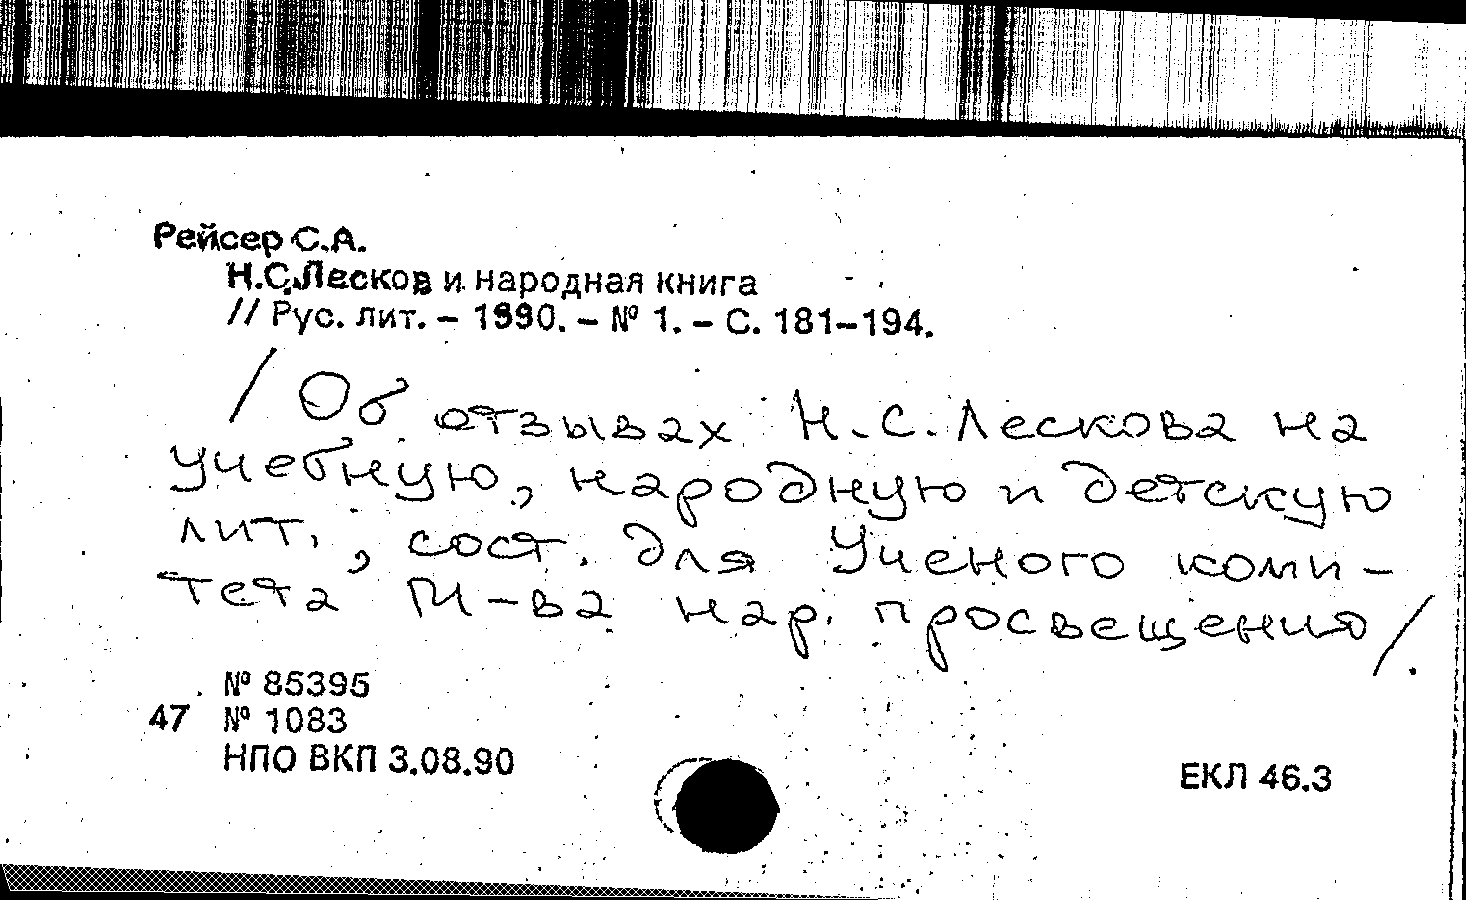 Рейсер С.А.
Н.С.Лесков и народная книга
// Рус. лит. – 1990. – № 1. – С. 181–194.
/ Об отзывах Н.С. Лескова на
учебную, народную и детскую
лит., сост. для Ученого коми-
тета М-ва нар. просвещения/.
№ 85395
47 № 1083
НПО ВКП 3.08.90
ЕКЛ 46.3